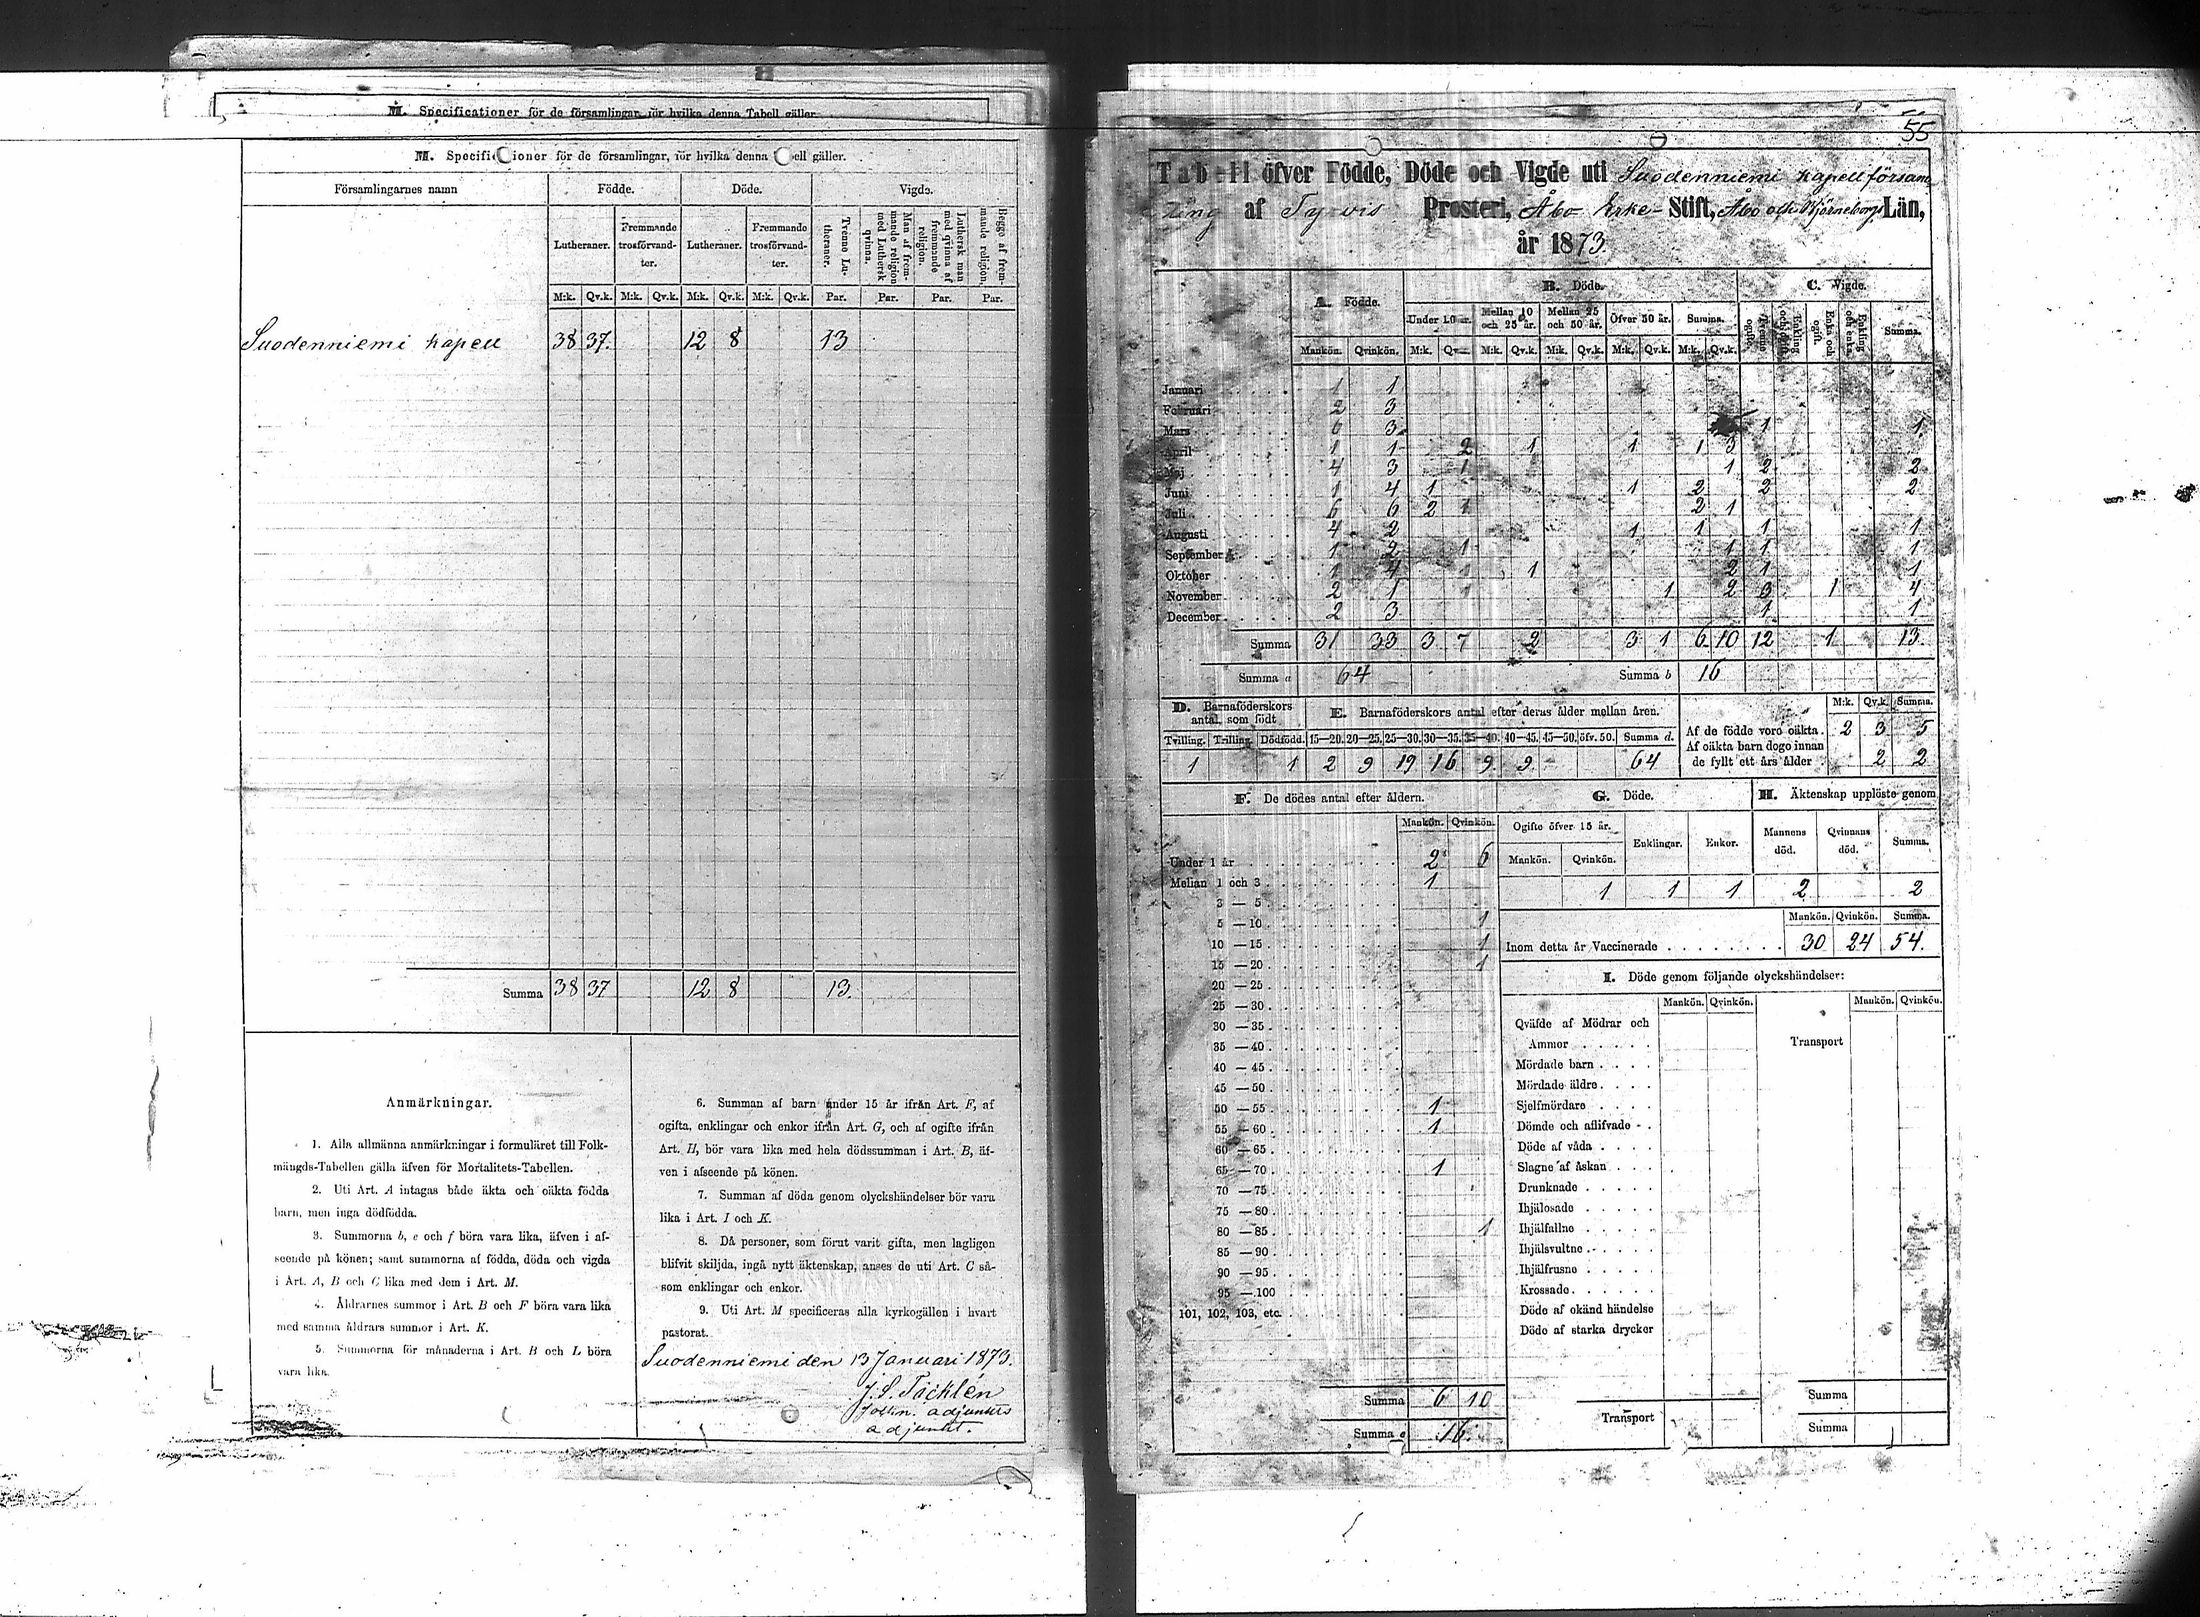 M. Specificationer för de församlingar, för hvilka denna Tabell gäller.
M. Specificationer för de församlingar, för hvilka denna Tabell gäller.
Församlingarnes namn Födde. Döde. Vigda.
Lutheraner. Fremmande trosförvandter. Lutheraner. Fremmande trosförvandter. Tvenne Lutheraner. Man af fremmande religion med Luthersk qvinna. Luthersk man med qvinna af fremmande religion. Begge af fremmande religion.
M:k. Qv.k. M:k. Qv.k. M:k. Qv.k. M:k. Qv.k. Par. Par. Par. Par.
Suodenniemi kapell 38 37. 12 8 13
Summa 38 37 12 8 13.
Anmärkningar.
1. Alla allmänna anmärkningar i formuläret till Folk-
mängds-Tabellen gälla äfven för Mortalitets-Tabellen.
2. Uti Art. A intagas både äkta och oäkta födda
barn, men inga dödfödda.
3. Summorna b, e och f böra vara lika, äfven i af-
seende på könen; samt summorna af födda, döda och vigda
i Art. A, B och C lika med dem i Art. M.
4. Åldrarnes summor i Art. B och F böra vara lika
med samma åldrars summor i Art. K.
5. Summorna för månaderna i Art. B och L böra
vara lika.
6. Summan af barn under 15 år ifrån Art. F, af
ogifta, enklingar och enkor ifrån Art. G, och af ogifte ifrån
Art. H, bör vara lika med hela dödssumman i Art. B, äf-
ven i afseende på könen.
7. Summan af döda genom olyckshändelser bör vara
lika i Art. I och K.
8. Då personer, som förut varit gifta, men lagligen
blifvit skiljda, ingå nytt äktenskap, anses de uti Art. C så-
som enklingar och enkor.
9. Uti Art. M specificeras alla kyrkogällen i hvart
pastorat.
Suodenniemi den 13 Januari 1873.
J. S. Täcklén
adjunkts
adjunkt.
55
Tabell öfver Födde, Döde och Vigde uti Suodenniemi kapellförsam
ling af Tyrvis Prosteri, Åbo Erke- Stift, Åbo och Björneborgs Län,
år 1873.
A. Födde. B. Döde. C. Vigde.
Under 10 år. Mellan 10 och 25 år. Mellan 25 och 50 år. Öfver 50 år. Summa. Tvenne ogifte. Enka och ogift. Enkling och enka. Summa.
Mankön. Qvinkön. M:k. Qv.k. M:k. Qv.k. M:k. Qv.k. M:k. Qv.k. M:k. Qv.k.
Januari 1 1
Februari 2 3
Mars 6 3 1 1
April 1 1 2 1 1 1 3
Maj 4 3 1 1 2 2
Juni 1 4 1 1 2 2 2
Juli 6 6 2 1 2 1
Augusti 4 2 1 1 1 1
September 1 2 1 1 1 1
Oktober 1 4 1 1 2 1 1
November 2 1 1 2 3 1 4
December 2 3 1 1
Summa 31 33 3 7 2 3 1 6 10 12 1 13
Summa a 64 Summa b 16
D. Barnaföderskors antal, som födt
Tvilling. Trilling. Dödfödd.
1 1
E. Barnaföderskors antal efter deras ålder mellan åren.
15—20. 20—25. 25—30. 30—35. 35—40. 40—45. 45—50. öfv. 50. Summa d.
2 9 19 16 9 9 64
M:k. Qv.k. Summa.
Af de födde voro oäkta 2 3 5
Af oäkta barn dogo innan
de fyllt ett års ålder 2 2
F. De dödes antal efter åldern.
Mankön. Qvinkön.
Under 1 år 2 6
Mellan 1 och 3 1
3 — 5
5 — 10 1
10 — 15 1
15 — 20 1
20 — 25
25 — 30
30 — 35
35 — 40
40 — 45
45 — 50
50 — 55 1
55 — 60 1
60 — 65
65 — 70 1
70 — 75
75 — 80
80 — 85 1
85 — 90
90 — 95
95 — 100
101, 102, 103, etc.
Summa 6 10
Summa e 16.
G. Döde.
Ogifte öfver 15 år. Enklingar. Enkor.
Mankön. Qvinkön.
1 1 1
H. Äktenskap upplöste genom
Mannens död. Qvinnans död. Summa.
2 2
Mankön. Qvinkön. Summa.
Inom detta år Vaccinerade 30 24 54.
I. Döde genom följande olyckshändelser:
Mankön. Qvinkön. Mankön. Qvinkön.
Qväfde af Mödrar och
Ammor Transport
Mördade barn
Mördade äldre
Sjelfmördare
Dömde och aflifvade
Döde af våda
Slagne af åskan
Drunknade
Ihjälosade
Ihjälfallne
Ihjälsvultne
Ihjälfrusne
Krossade
Döde af okänd händelse
Döde af starka drycker
Summa
Transport Summa